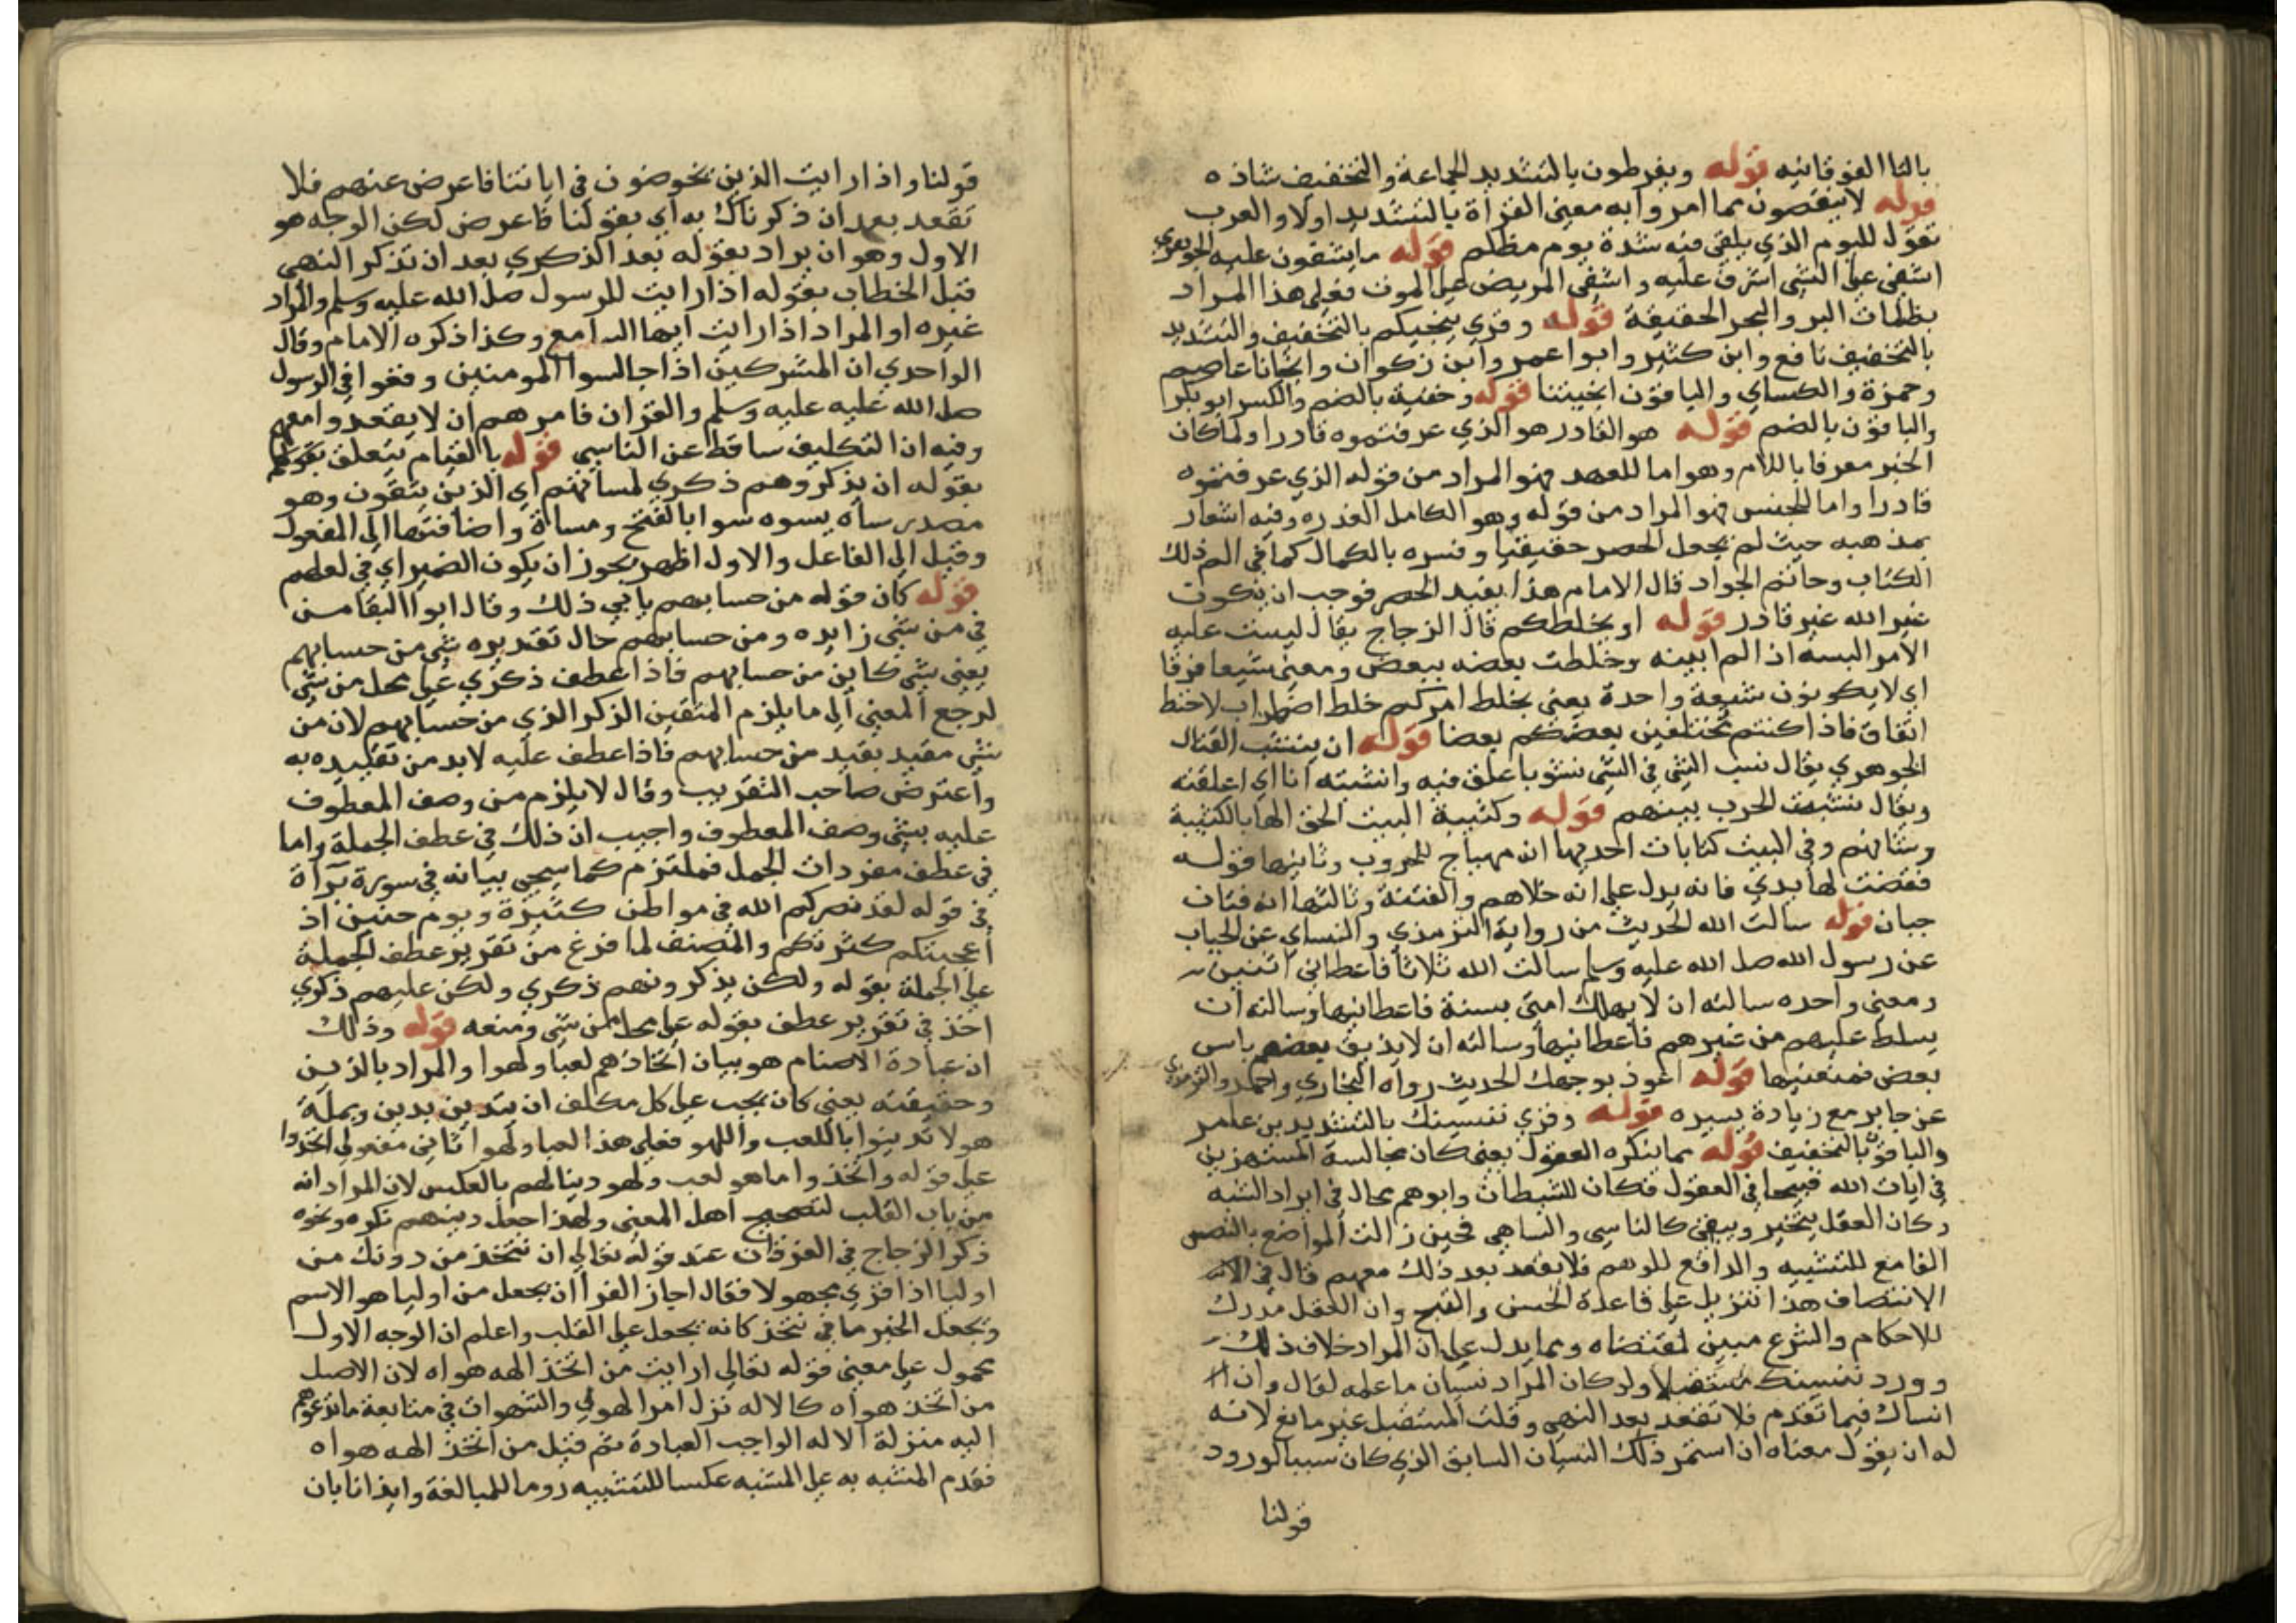 بالتا الفوقانيه قوله ويفرطون بالتشديد الجماعة والتخفيف شاذه
قوله لا ينقصون مما امروا به معنى القراة بالتشديد اولا والعرب
تقول لليوم الذي يلقى فيه شدة يوم مظلم قوله ما يشقون عليه الجوهري
اشفى على الشي اشرف عليه واشفى المريض على الموت فعلى هذا المراد
بظلمات البر والبحر الحقيقة قوله وقري ينجيكم بالتخفيف والتشديد
بالتخفيف نافع وابن كثير وابوا عمر وابن ذكوان وانجانا عاصم
وحمزة والكساي والباقون انجيتنا قوله وخفية بالضم والكسر ابو بكر
والباقون بالضم قوله هو القادر هو الذي عرفتموه قادرا ولما كان
الخبر معرفا باللام وهو اما للعهد فهو المراد من قوله الذي عرفتموه
قادرا واما للجنس فهو المراد من قوله وهو الكامل القدره وفيه اشعار
بمذهبه حيث لم يجعل الحصر حقيقيا وفسره بالكمال كما في الم ذلك
الكتاب وحاتم الجواد قال الامام هذا يفيد الحصر فوجب ان يكون
غير الله غير قادر قوله او يخلطكم قال الزجاج يقال لبست عليه
الامر البسه اذا لم ابينه وخلطت بعضه ببعض ومعنى شيعا فرقا
اي لا يكونون شيعة واحدة يعني يخلط امركم خلط اضطراب لا خلط
اتفاق فاذا كنتم مختلفين بعضكم بعضا قوله ان ينشب القتال
الجوهري يقال نشب الشي في الشي نشوبا علق فيه وانشبته انا اي اعلقته
ويقال نشبت الحرب بينهم قوله وكتيبة البيت الحق الها بالكتيبة
وفي البيت كنايات احديها انه مهياج للحروب وثانيها قوله
فنفضت لها يدي فانه يدل على انه خلاهم والفتنة وثالثها انه فتان
جبان قوله سالت الله الحديث من رواية الترمذي والنساي عن الخباب
عن رسول الله صلى الله عليه وسلم سالت الله ثلاثا فاعطاني اثنين
ومنعني واحده سالته ان لا يهلك امتي بسنة فاعطانيها وسالته ان
يسلط عليهم من غيرهم فاعطانيها وسالته ان لا يذيق بعضهم باس
بعض فمنعنيها قوله اعوذ بوجهك الحديث رواه البخاري واحمد والترمذي
عن جابر مع زيادة يسيره قوله وقري ننسينك بالتشديد بن عامر
والباقون بالتخفيف قوله مما تنكره العقول يعني كان مجالسة المستهزين
في ايات الله قبيحا في العقول فكان للشيطان وابوهم مجال في ايراد الشبه
وكان العقل يتحير ويبقى كالناسي والساهي فحين زالت المواضع بالنص
القامع للتشبيه والدافع للوهم فلا يقعد بعد ذلك معهم قال في
الانتصاف هذا تنزيل على قاعدة الحسن والقبح وان العقل مدرك
للاحكام والشرع مبين لمقتضاه ومما يدل على ان المراد خلاف ذلك
وورد ننسينك مستقبلا ولو كان المراد نسيان ما علمه لقال وان
انساك فيما تقدم فلا تقعد بعد النهي وقلت المستقبل غير مانع لانه
له ان يقول معناه ان استمر ذلك النسيان السابق الذي كان سببا لورود
قولنا
قولنا واذا رايت الذين يخوضون في اياتنا فاعرض عنهم فلا
تقعد بعد ان ذكرناك به اي بقولنا فاعرض لكن الوجه هو
الاول وهو ان يراد بقوله بعد الذكري بعد ان تذكر النهي
قبل الخطاب بقوله اذا رايت للرسول صلى الله عليه وسلم والمراد
غيره او المراد اذا رايت ايها السامع وكذا ذكره الامام وقال
الواحدي ان المشركين اذا جالسوا المومنين وقعوا في الرسول
صلى الله عليه عليه وسلم والقران فامرهم ان لا يقعدوا معهم
وفيه ان التكليف ساقط عن الناسي قوله بالقيام يتعلق بقولهم
بقوله ان يذكروهم ذكري لمسائتهم اي الذين يتقون وهو
مصدر ساه يسوه سوا بالفتح ومسالة واضافتها الى المفعول
وقيل الى الفاعل والاول اظهر يجوز ان يكون الضمير اي في لعلهم
قوله كان قوله من حسابهم يابي ذلك وقال ابوا البقا من
في من شي زايده ومن حسابهم حال تقديره شي من حسابهم
يعني شي كاين من حسابهم فاذا عطف ذكري على محل من شي
لرجع المعنى الى ما يلزم المتقين الذكر الذي من حسابهم لان من
شي مقيد بقيد من حسابهم فاذا عطف عليه لا بد من تقييده به
واعترض صاحب التقريب وقال لا يلزم من وصف المعطوف
عليه بشي وصف المعطوف واجيب ان ذلك في عطف الجملة واما
في عطف مفردات الجمل فملتزم كما سيجي بيانه في سورة براة
في قوله لقد نصركم الله في مواطن كثيرة ويوم حنين اذ
اعجبتكم كثرتكم والمصنف لما فرغ من تقرير عطف الجملة
على الجملة بقوله ولكن يذكرونهم ذكري ولكن عليهم ذكري
اخذ في تقرير عطف بقوله على محل من شي ومنعه قوله وذلك
ان عبادة الاصنام هو بيان اتخاذهم لعبا ولهوا والمراد بالذين
وحقيقته يعني كان يجب على كل مكلف ان يتدين بدين وبملة
هولا تدينوا باللعب واللهو فعلى هذا لعبا ولهوا ثاني مفعولي اتخذوا
على قوله واتخذوا ما هو لعب ولهو دينا لهم بالعكس لان المراد انه
من باب القلب لتصحيح اهل المعنى ولهذا جعل دينهم نكره ونحوه
ذكر الزجاج في الفرقان عند قوله تعالى ان نتخذ من دونك من
اوليا اذا قري مجهولا فقال اجاز الفرا ان يجعل من اوليا هو الاسم
ويجعل الخبر ما في نتخذ كانه يجعل على القلب واعلم ان الوجه الاول
محمول على معنى قوله تعالى ارايت من اتخذ الهه هواه لان الاصل
من اتخذ هواه كالاله نزل امر الهوى والشهوات في متابعة ما تدعوهم
اليه منزلة الاله الواجب العبادة ثم قيل من اتخذ الهه هواه
فقدم المشبه به على المشبه عكسا للتشبيه روما للمبالغة وايذانا بان